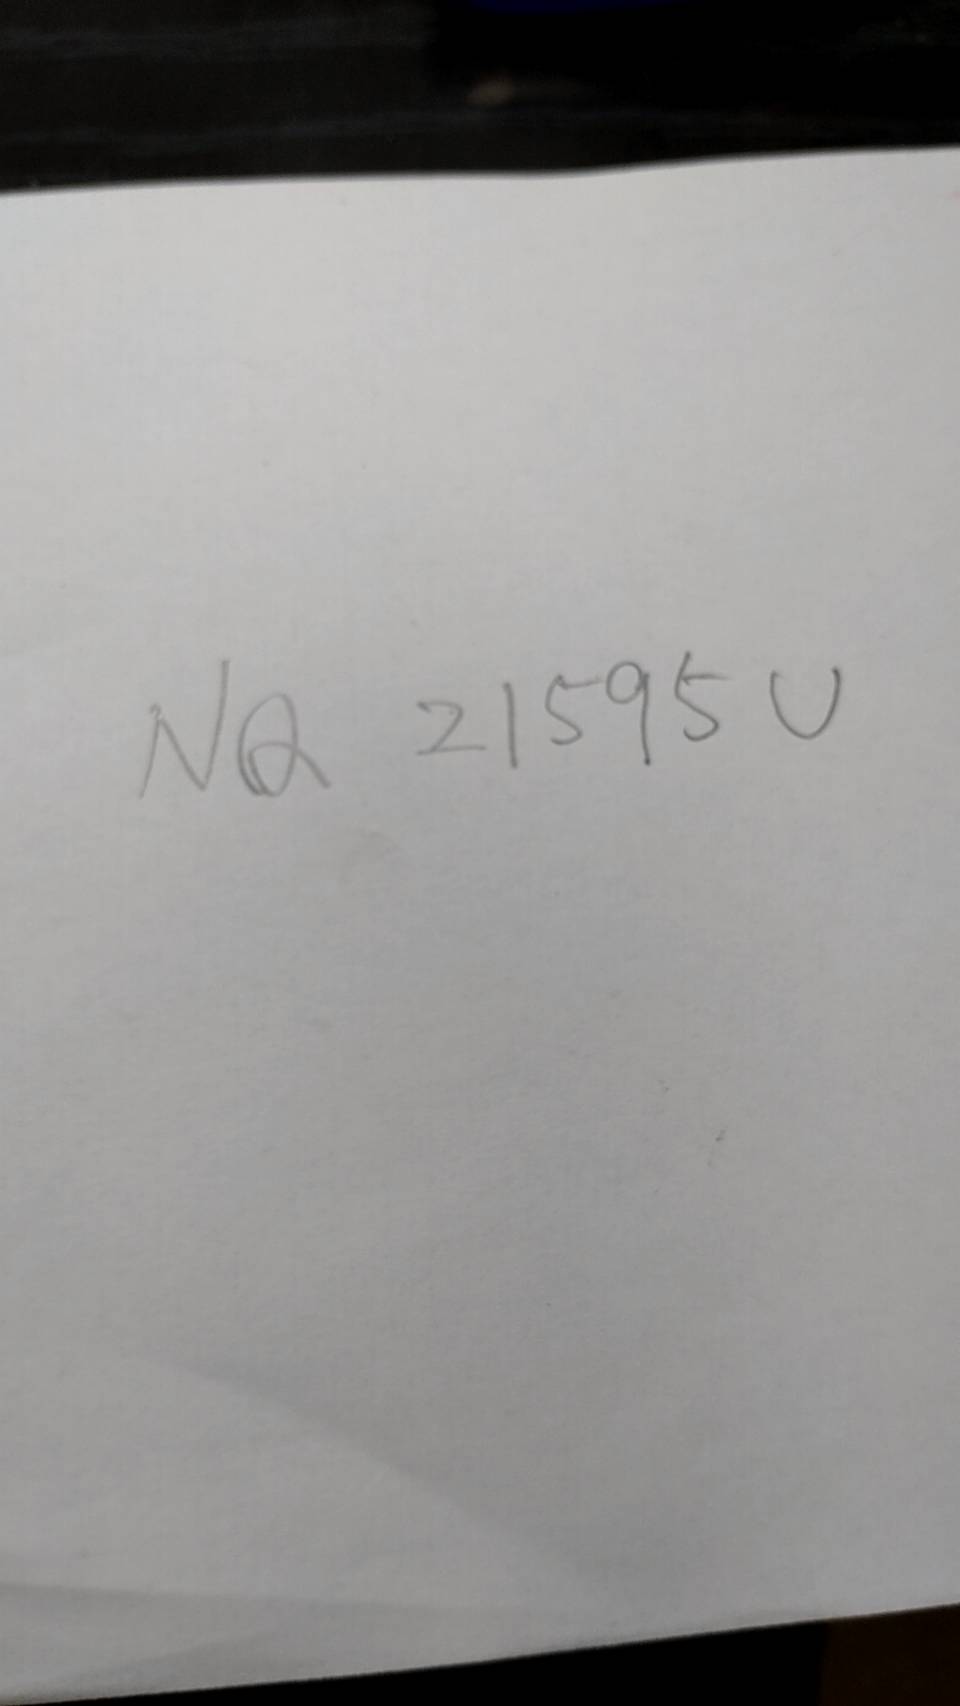 NQ 21595U